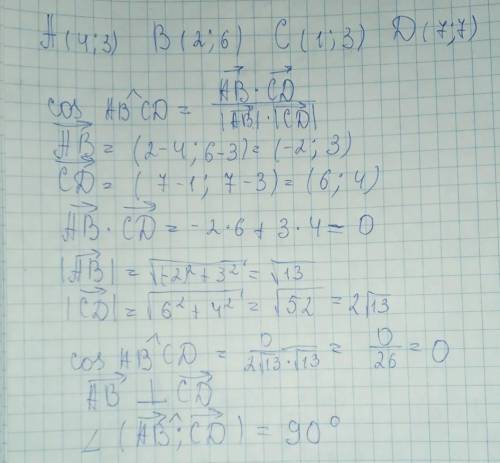 A(4;3) B(2;6) C(1;3) D(7;7)
cos AB^CD = AB·CD / |AB|·|CD|
AB = (2-4; 6-3) = (-2; 3)
CD = (7-1; 7-3) = (6; 4)
AB · CD = -2·6 + 3·4 = 0
|AB| = √(-2)²+3² = √13
|CD| = √6²+4² = √52 = 2√13
cos AB^CD = 0 / 2√13·√13 = 0/26 = 0
AB ⊥ CD
∠(AB^;CD) = 90°